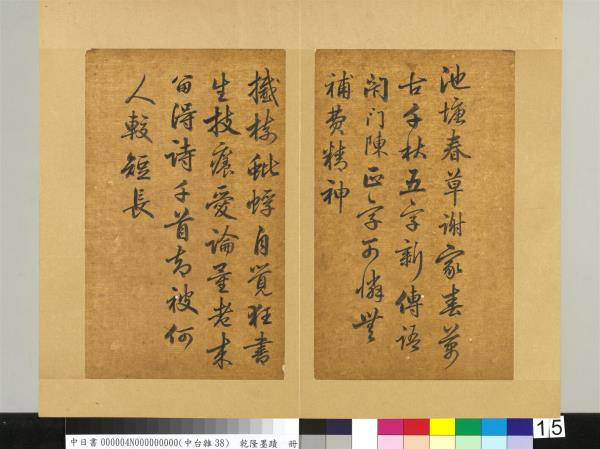 池塘春草謝家春萬
古千秋五字新傳語
閉門陳正字可憐無
補費精神
撼樹蚍蜉自覺狂書
生技癢愛論量老来
留得詩千首却被何
人較短長
中日書 000004N000000000(中台雜 38) 乾隆墨蹟 冊
15